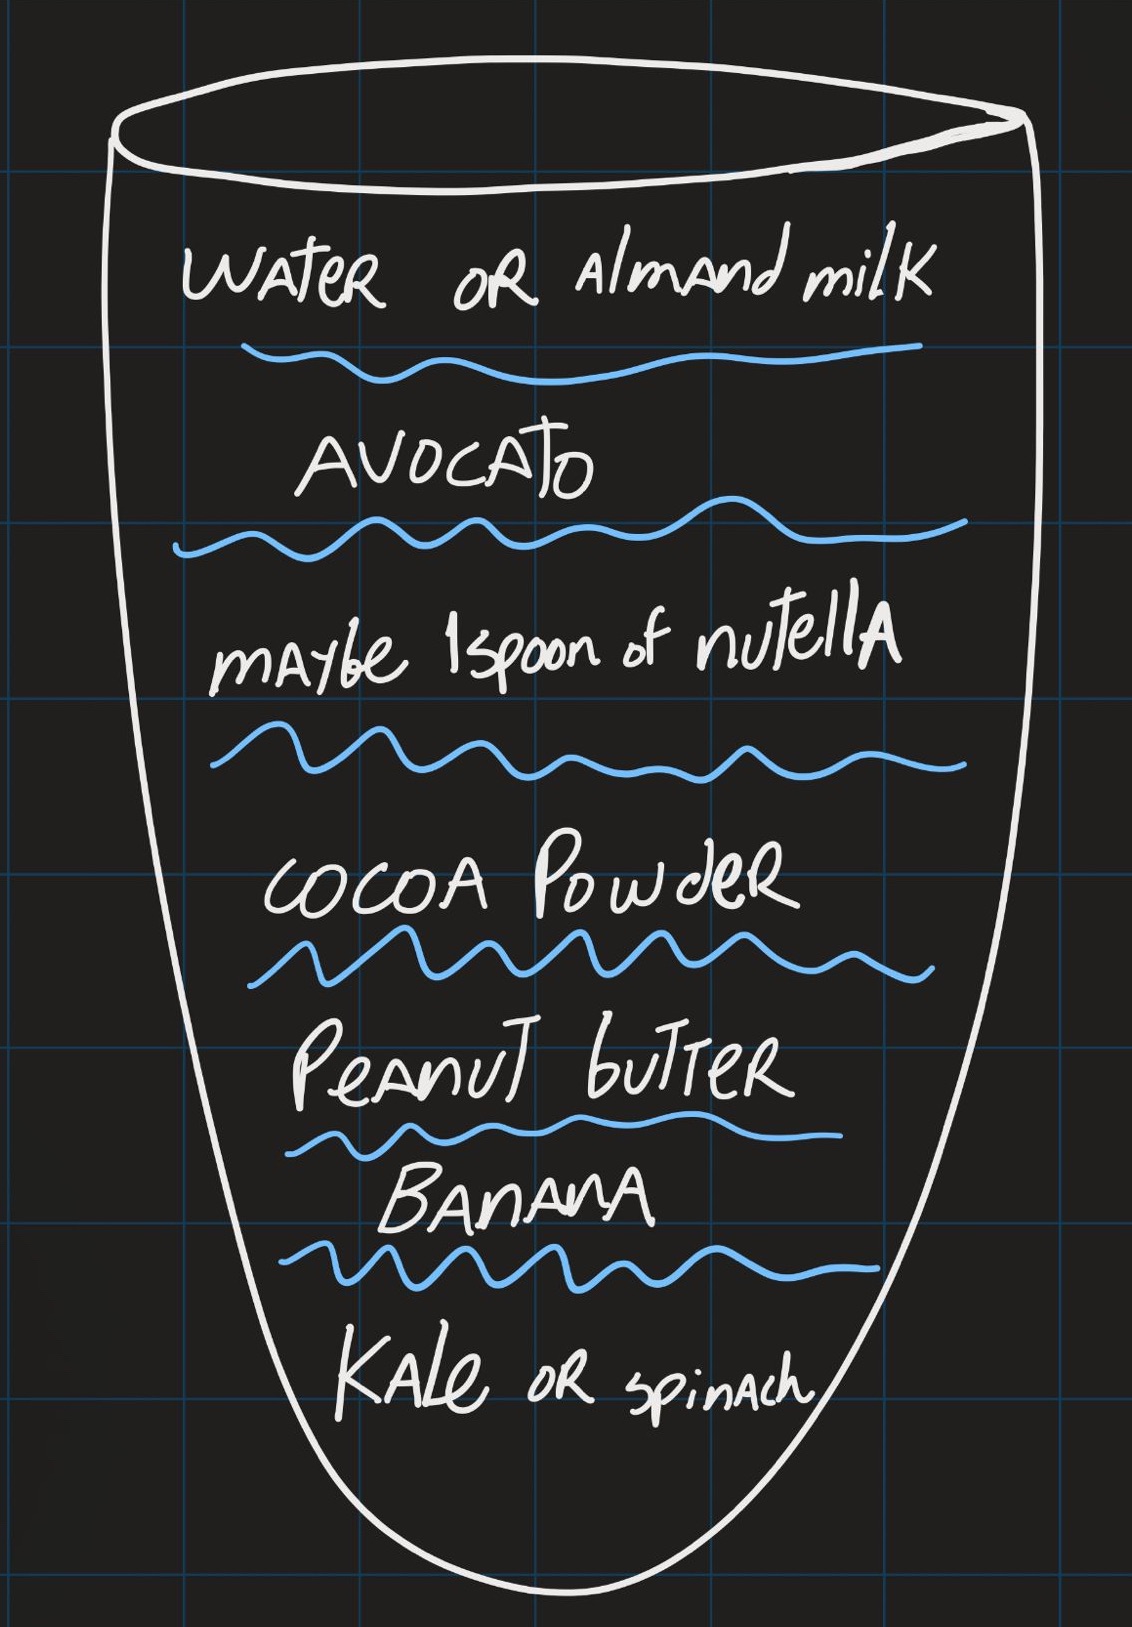 WATER OR AlmAnd milK
AVOCATO
mAybe 1 spoon of nuTellA
COCOA PowdeR
PeAnuT buTTeR
BAnAnA
KAle OR spinAch